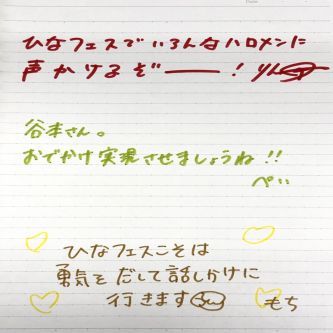 ひなフェスでいろんなハロメンに
声かけるぞー!りん
谷本さん。
おでかけ実現させましょうね!!
ぺい
ひなフェスこそは
勇気をだして話しかけに
行きます
もち